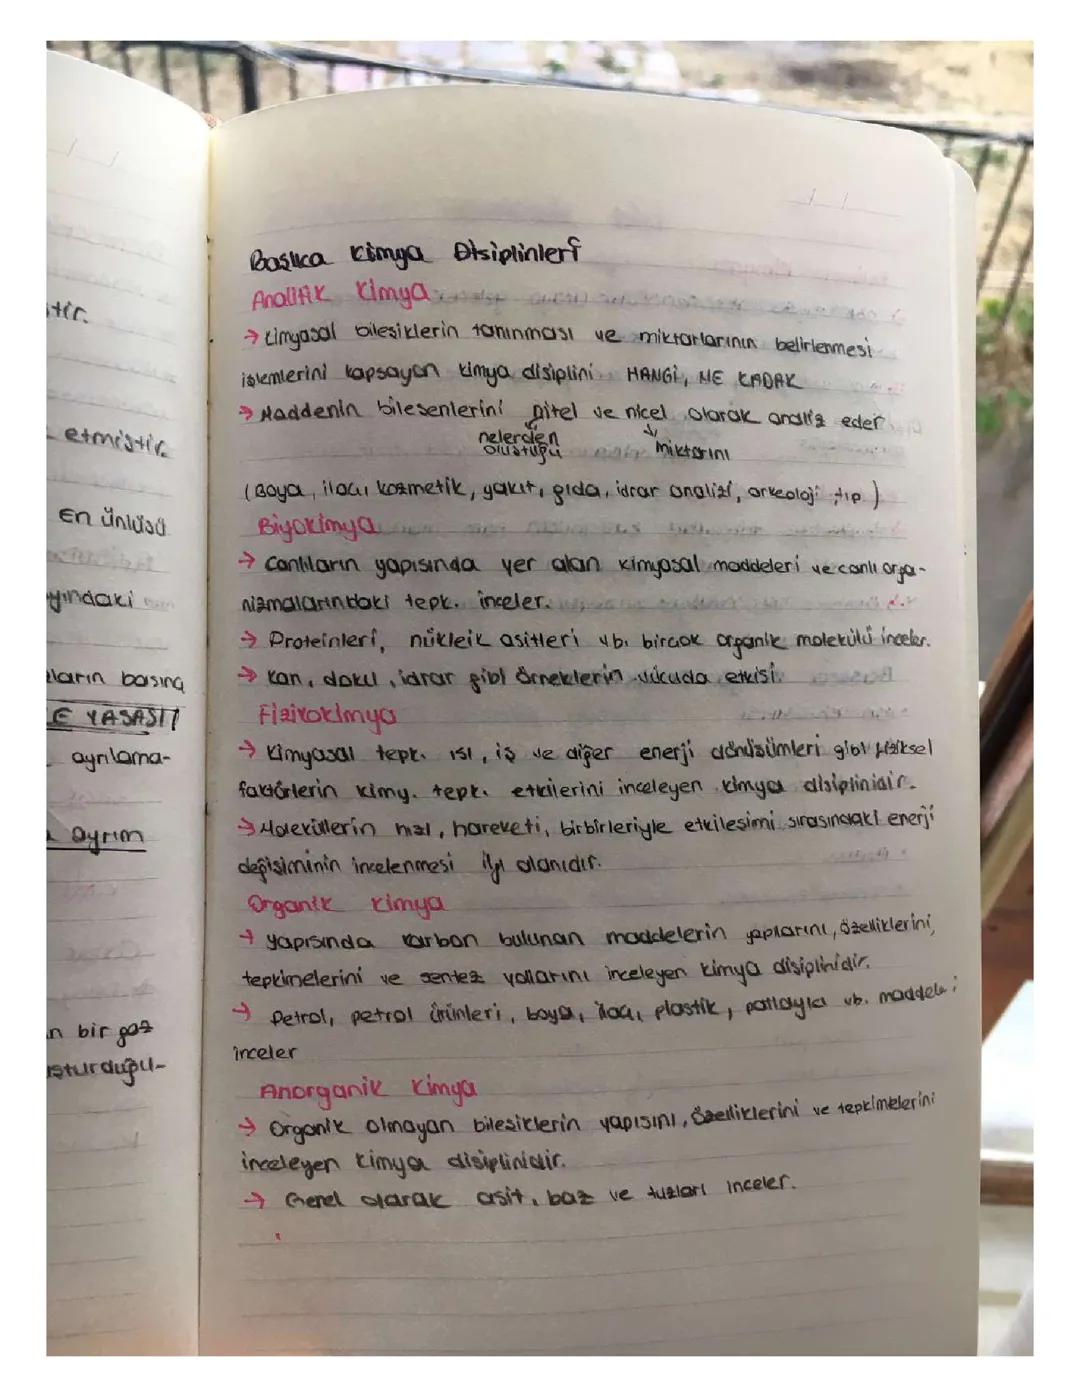 tir.
etmiştir.
En ünlüsü
yındaki
ların basınç
E YASASI
ayrılama-
ayrım
n bir gaz
şturduğu-
Başlıca Kimya Disiplinleri
Analitik Kimya
→ Kimyasal bileşiklerin tanınması ve miktarlarının belirlenmesi
işlemlerini kapsayan kimya disiplini HANGİ, NE KADAR
→ Maddenin bileşenlerini nitel ve nicel olarak analiz eder
nelerden
oluştuğu
miktarını
(Boya, ilaç, kozmetik, yakıt, gıda, idrar analizi, arkeoloji, tıp)
Biyokimya
→ Canlıların yapısında yer alan kimyasal maddeleri ve canlı orga-
nizmalarındaki tepk. inceler.
→ Proteinleri, nükleik asitleri vb. birçok organik molekülü inceler.
→ Kan, doku, idrar gibi örneklerin vücuda etkisi.
Fizikokimya
→ Kimyasal tepk. ısı, iş ve diğer enerji dönüşümleri gibi fiziksel
faktörlerin kimy. tepk. etkilerini inceleyen kimya disiplinidir.
→ Moleküllerin hızı, hareketi, birbirleriyle etkileşimi sırasındaki enerji
değişiminin incelenmesi ilgi alanıdır.
Organik Kimya
→ yapısında karbon bulunan maddelerin yapılarını, özelliklerini,
tepkimelerini ve sentez yollarını inceleyen kimya disiplinidir.
→ Petrol, petrol ürünleri, boya, ilaç, plastik, patlayıcı vb. maddeleri
inceler
Anorganik Kimya
→ Organik olmayan bileşiklerin yapısını, özelliklerini ve tepkimelerini
inceleyen kimya disiplinidir.
→ Genel olarak asit, baz ve tuzları inceler.